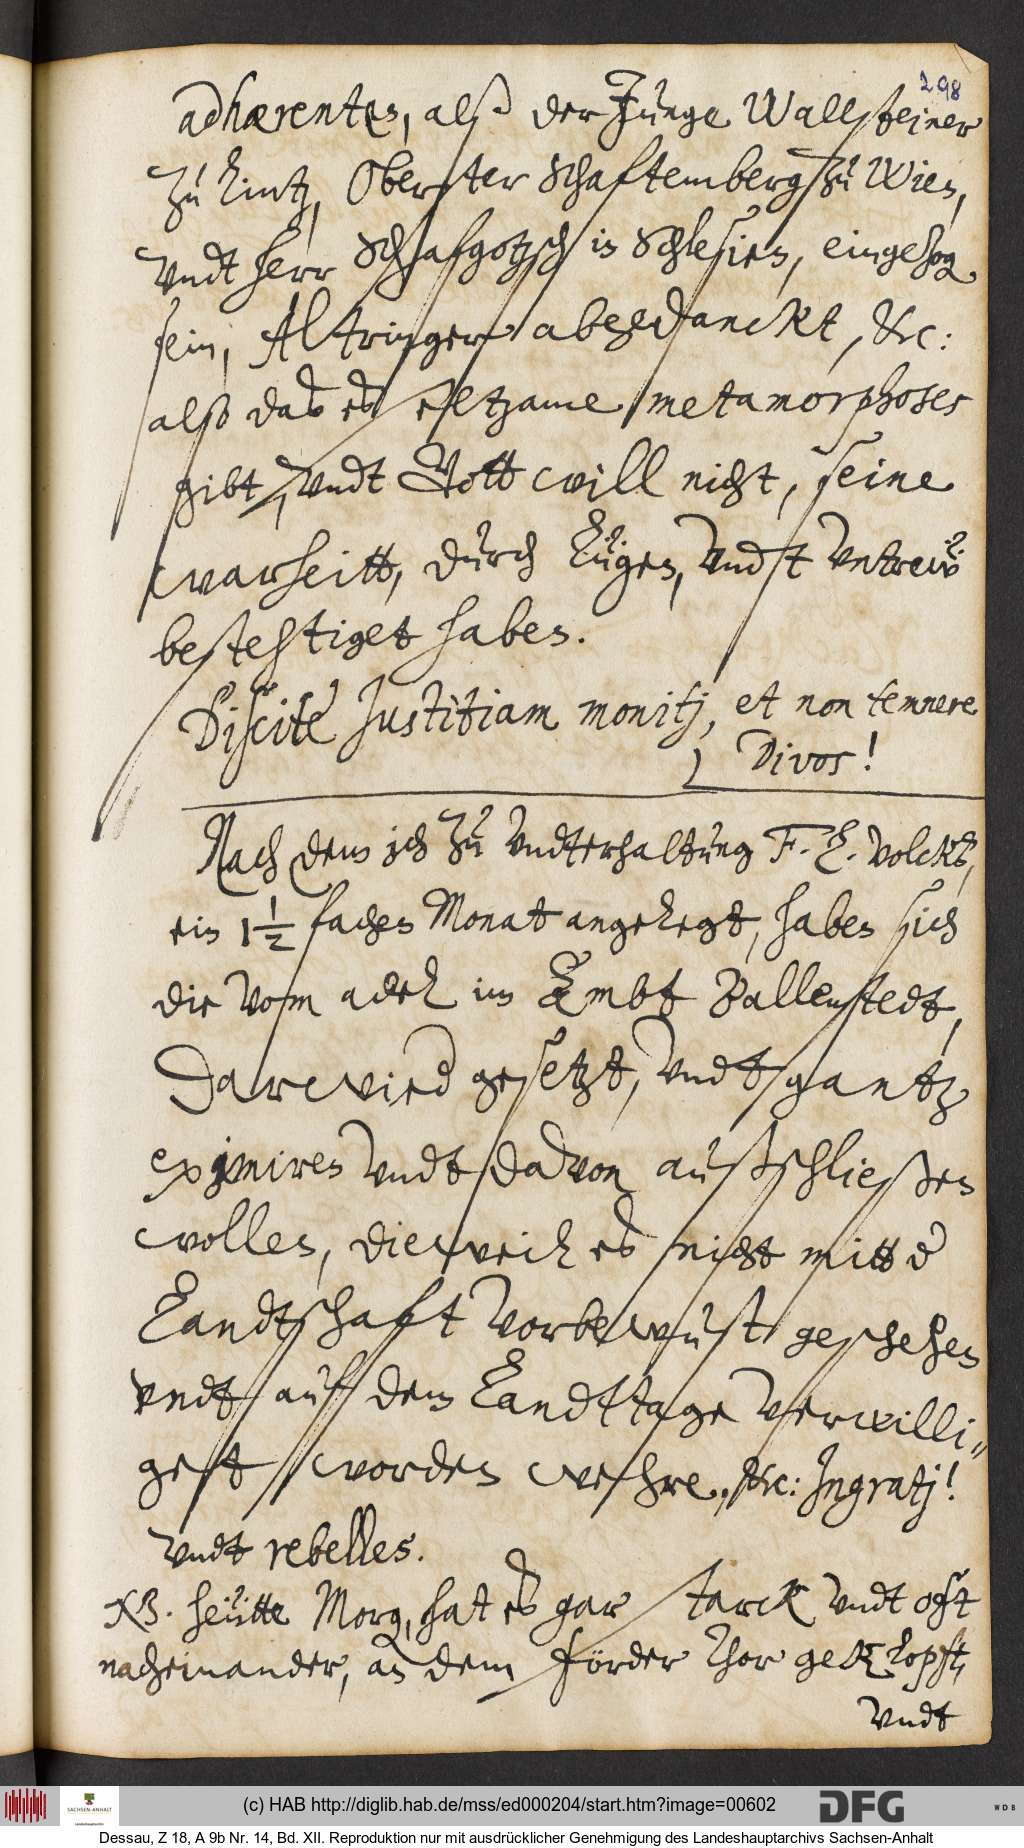 298
adhærentes, alß der Junge Wallsteiner
zu Lintz, Oberster Schaftemberg zu Wien,
vndt herr Schafgotzsch in Schlesien, eingezog.
sein, Altringer abgedanckt, &c:
alß daß es seltzame metamorphoses
gibt, vndt Gott will nicht, seine
warheitt, durch lügen, vndt vntrew
bestehtiget haben.
Discite Justitiam monitj, et non temnere
Divos!
Nach dem ich zu vndterhaltung F. L. volcks,
ein 1 1/2 fachen Monat angelegt, haben sich
die vom adel im Ambt Ballenstedt,
darwied gesetzt, vndt gantz
eximiren vndt davon außschließen
wollen, dieweil es nicht mitt d
Landtschaft vorbewust geschehen
vndt auf dem Landttage verwilli¬
get worden wehre, &c: Ingratj!
vndt rebelles.
NB. heütte Morg, hat es gar starck vndt oft
nacheinander, an dem förder Thor geklopft,
vndt
(c) HAB http://diglib.hab.de/mss/ed000204/start.htm?image=00602
SACHSEN-ANHALT
Landeshauptarchiv
DFG
W D B
Dessau, Z 18, A 9b Nr. 14, Bd. XII. Reproduktion nur mit ausdrücklicher Genehmigung des Landeshauptarchivs Sachsen-Anhalt